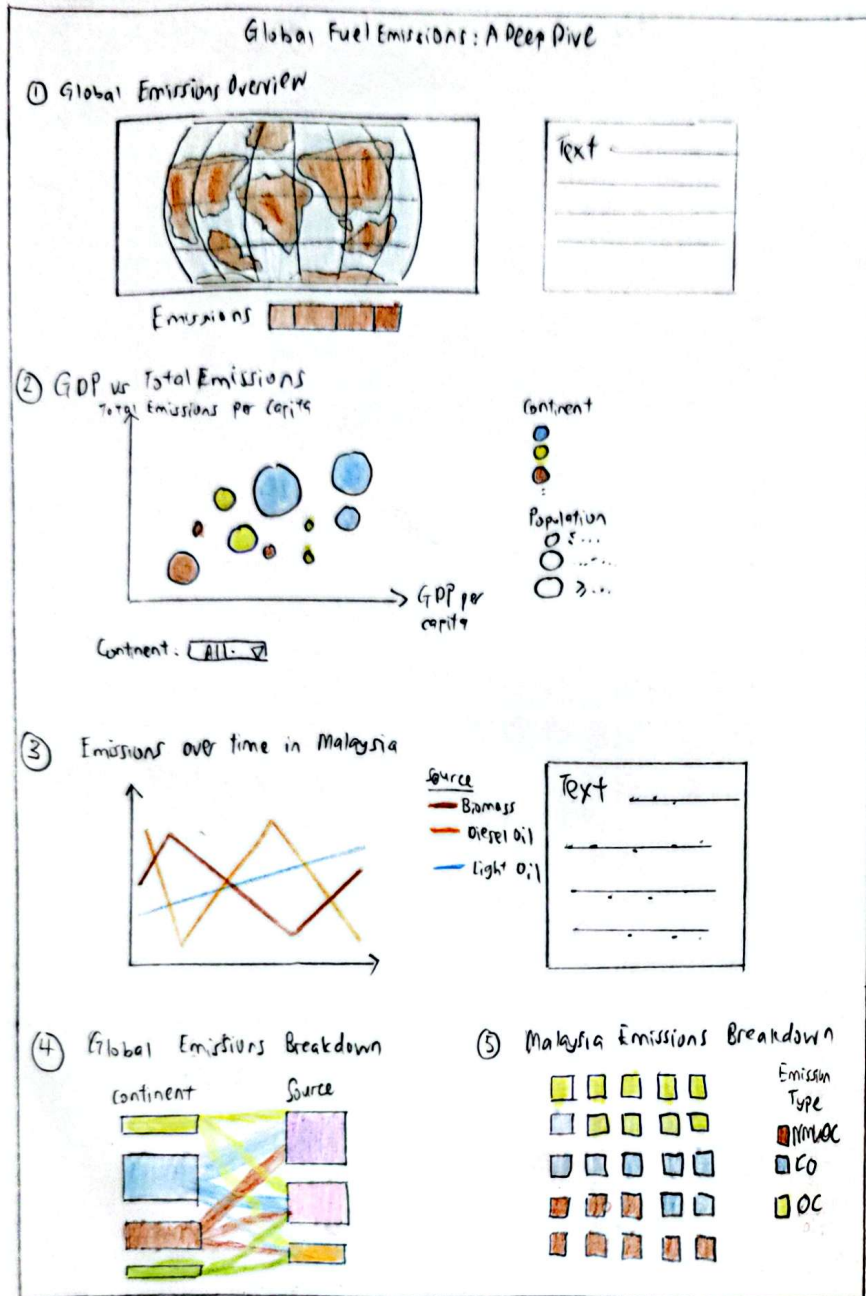 Global Fuel Emissions: A Deep Dive
① Global Emissions Overview
Text
Emissions
② GDP vs Total Emissions
Total Emissions per capita
Continent
Population
≤ ...
≥ ...
GDP per
capita
Continent: All
③ Emissions over time in Malaysia
Source
Biomass
Diesel Oil
Light Oil
Text
④ Global Emissions Breakdown
Continent
Source
⑤ Malaysia Emissions Breakdown
Emission
Type
NMVOC
CO
OC